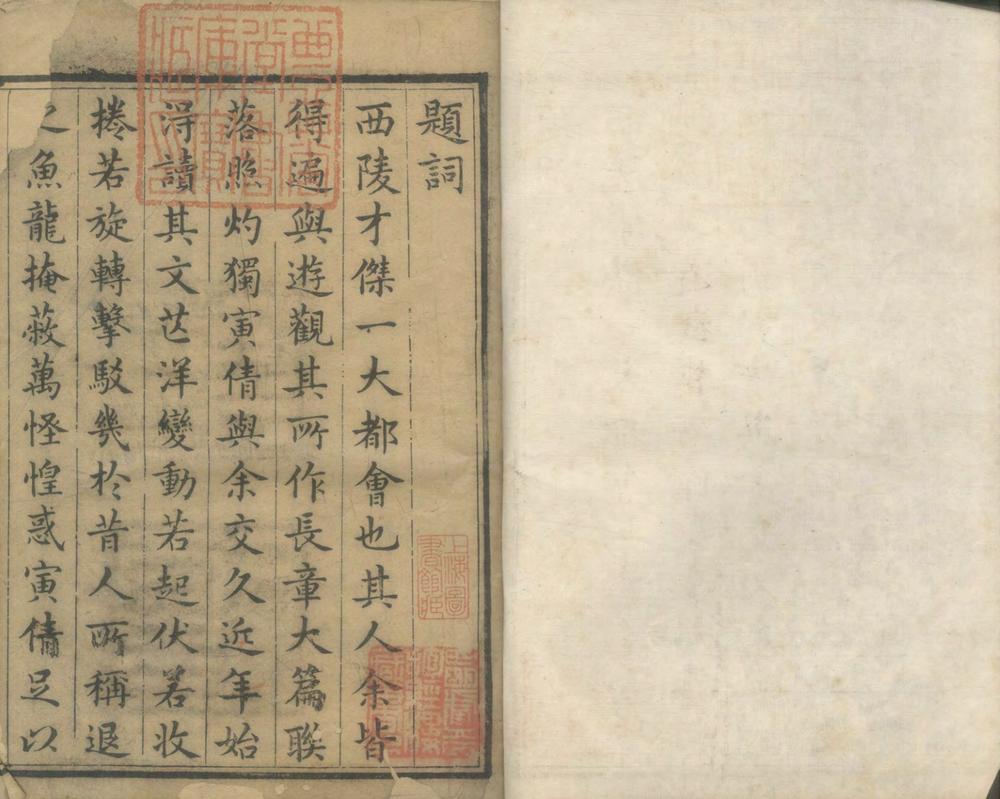 題詞
西陵才傑一大都會也其人余皆
得遍與遊觀其所作長章大篇聯
落照灼獨寅倩與余交久近年始
淂讀其文茫洋變動若起伏若收
捲若旋轉擊駁幾於昔人所稱退
之魚龍掩蔽萬怪惶惑寅倩足以
上海圖
書館藏